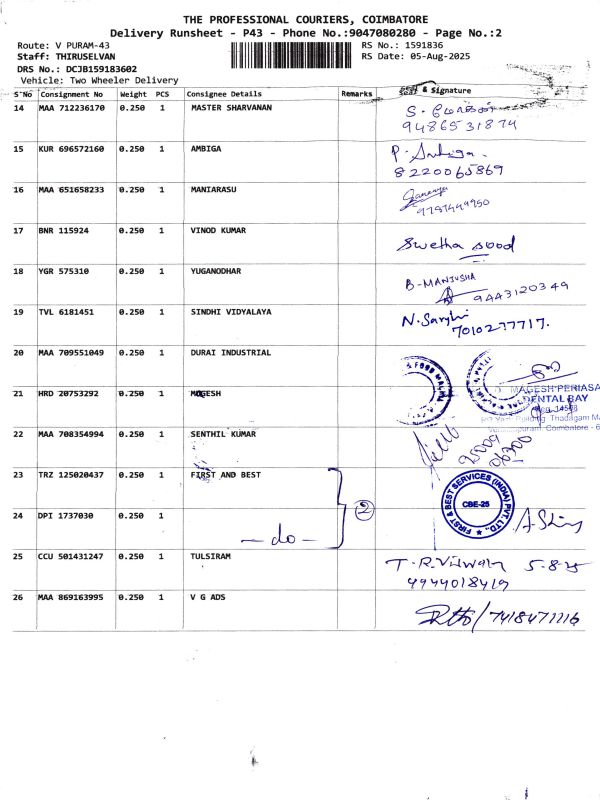 THE PROFESSIONAL COURIERS, COIMBATORE
Delivery Runsheet - P43 - Phone No.:9047080280 - Page No.:2
Route: V PURAM-43 RS No.: 1591836
Staff: THIRUSELVAN RS Date: 05-Aug-2025
DRS No.: DCJB159183602
Vehicle: Two Wheeler Delivery
S No Consignment No Weight PCS Consignee Details Remarks & Signature
14 MAA 712236170 0.250 1 MASTER SHARVANAN
9486531874
15 KUR 696572160 0.250 1 AMBIGA P. Ambiga.
8220065869
16 MAA 651658233 0.250 1 MANIARASU
9787449950
17 BNR 115924 0.250 1 VINOD KUMAR Swetha sood
18 YGR 575310 0.250 1 YUGANODHAR B-MANJUSHA
9443120349
19 TVL 6181451 0.250 1 SINDHI VIDYALAYA
7010277717.
20 MAA 709551049 0.250 1 DURAI INDUSTRIAL
21 HRD 20753292 0.250 1 MAGESH MAGESH PERIASA
DENTAL BAY
22 MAA 708354994 0.250 1 SENTHIL KUMAR
23 TRZ 125020437 0.250 1 FIRST AND BEST FIRST & BEST SERVICES (INDIA) PVT. LTD.
CBE-25
2
24 DPI 1737030 0.250 1 - do -
25 CCU 501431247 0.250 1 TULSIRAM 5-8-25
9944018419
26 MAA 869163995 0.250 1 V G ADS 7418471116
P43